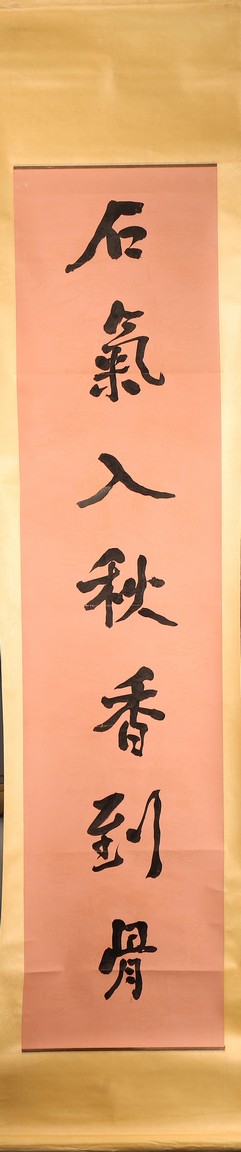 石氣入秋香到骨